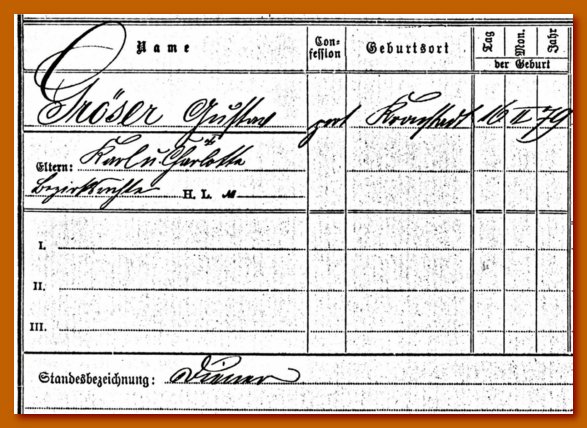 Name Con-fession Geburtsort Tag Mon. Jahr
der Geburt
Gröser Gustav prot Kronstadt 16 II 79
Eltern: Karl u Charlotte
H. L. №
I.
II.
III.
Standesbezeichnung: Diener